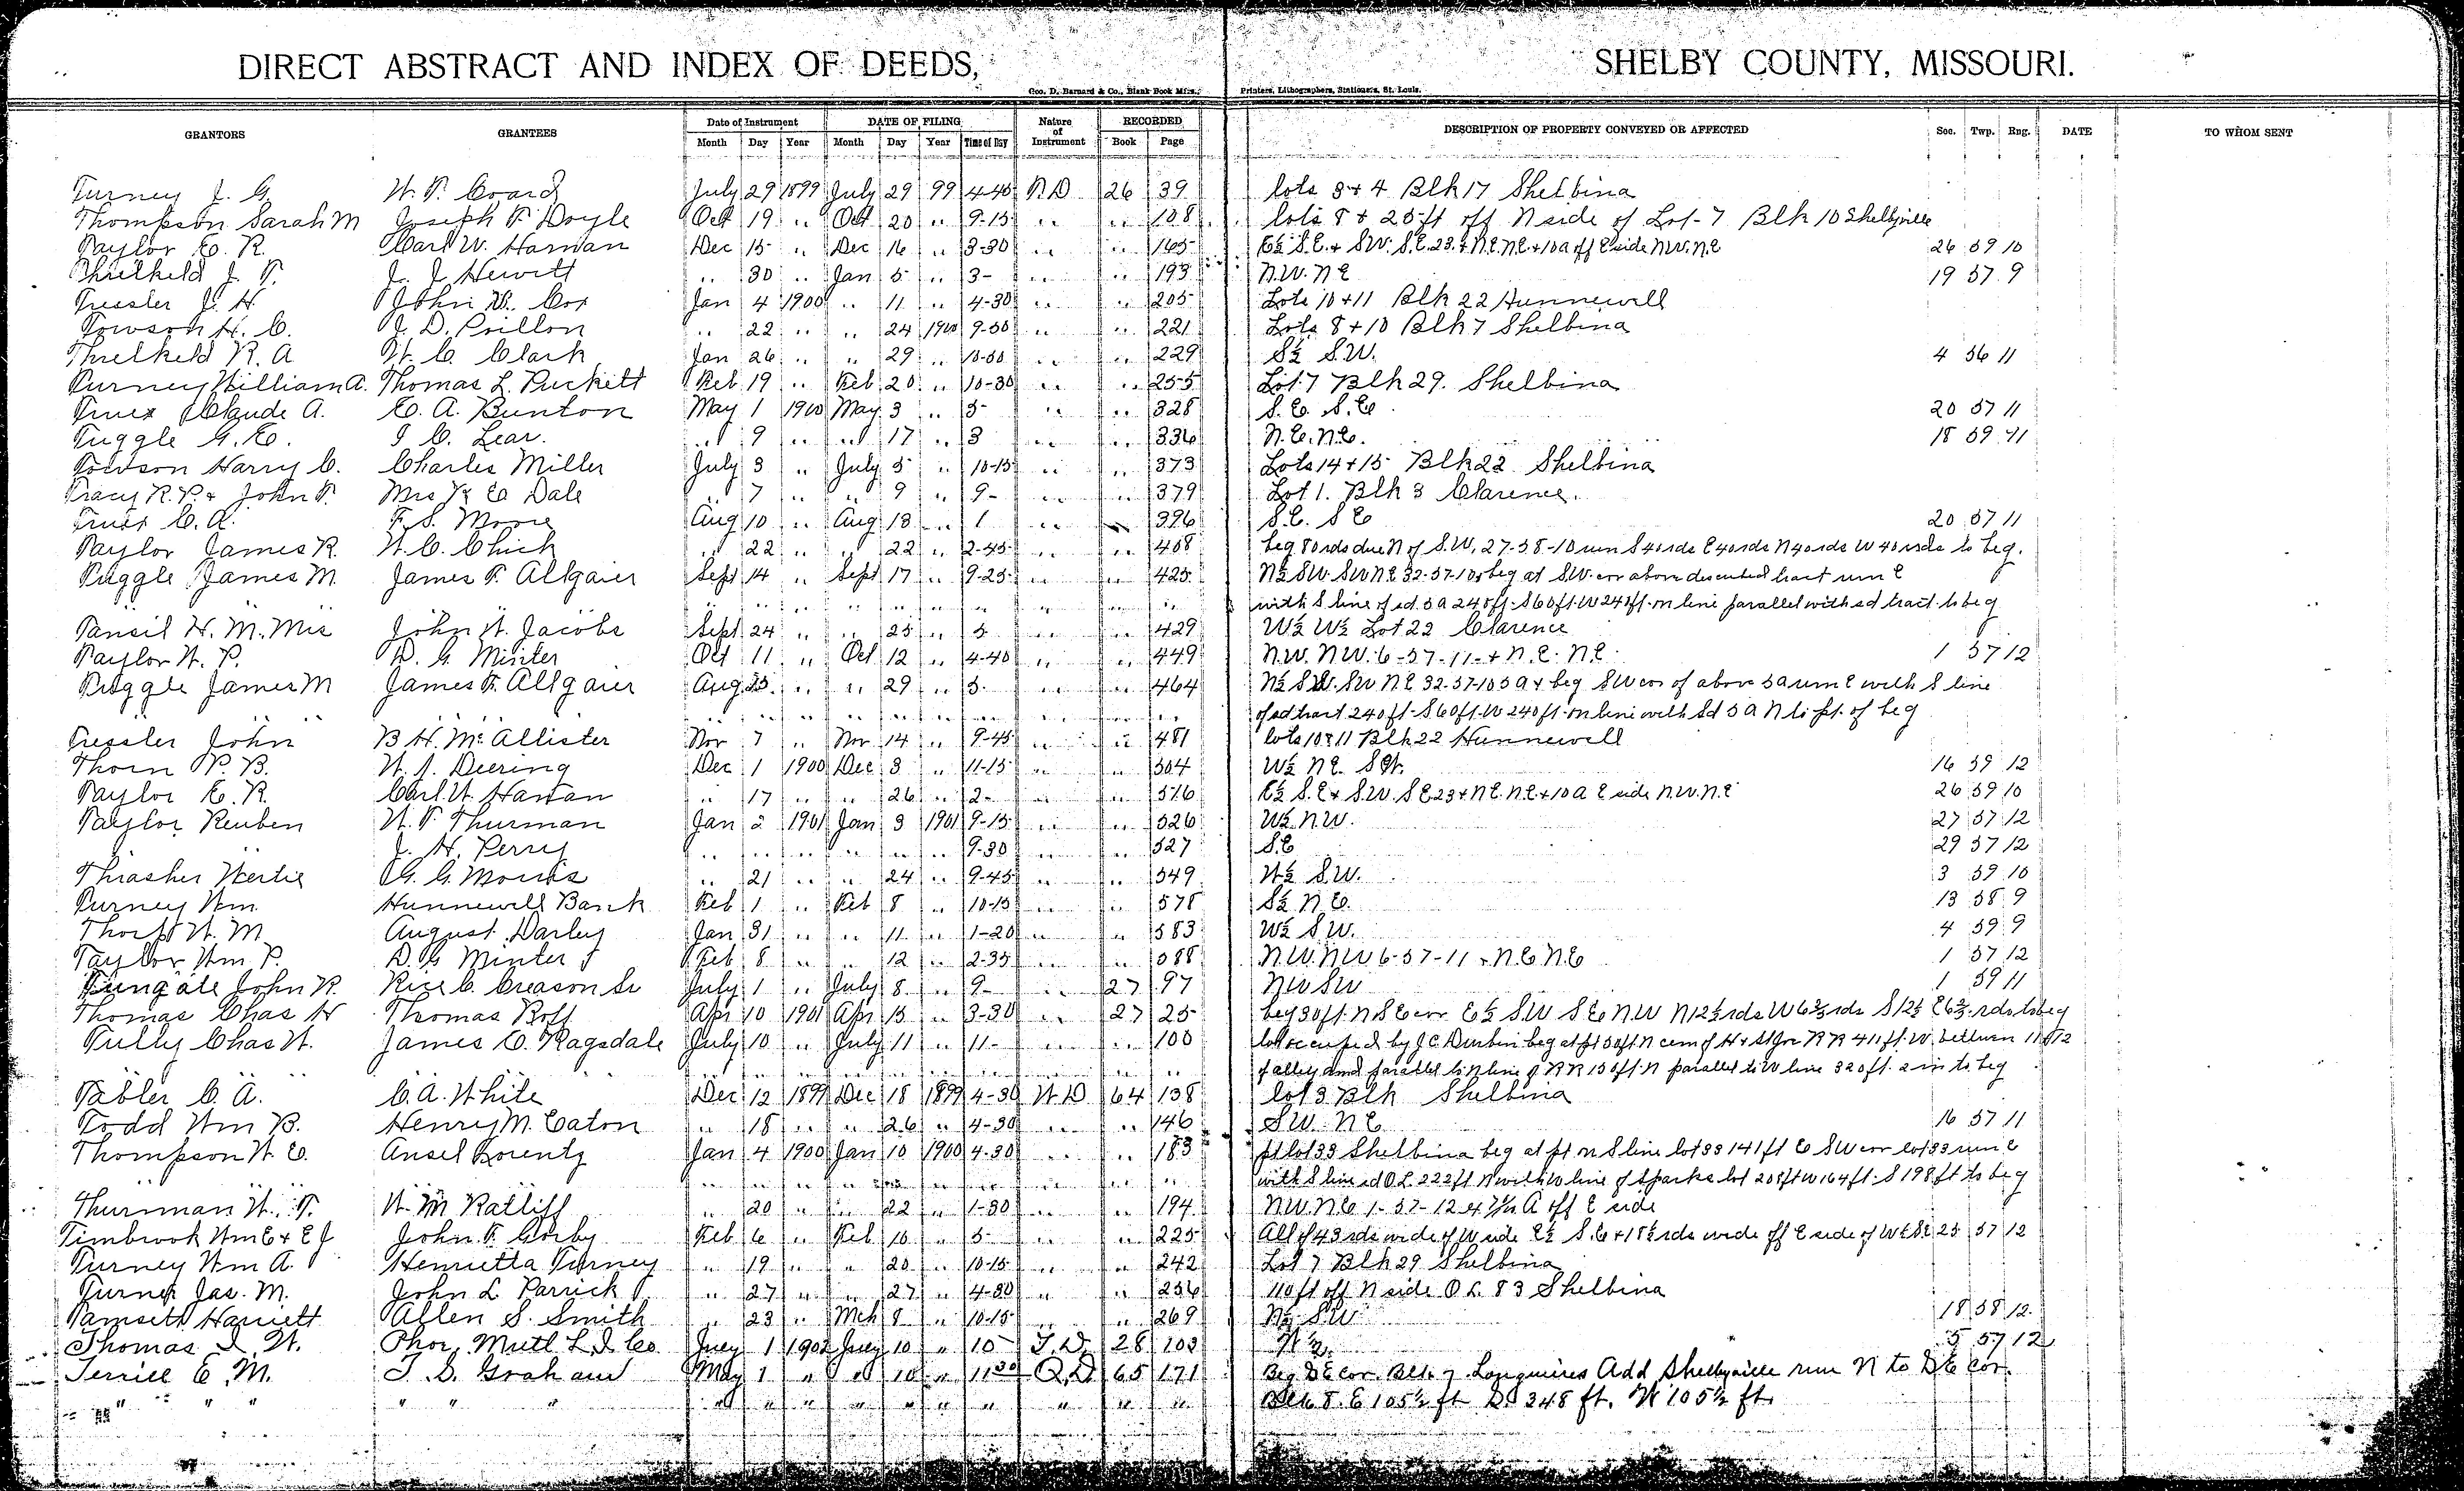 DIRECT ABSTRACT AND INDEX OF DEEDS, SHELBY COUNTY, MISSOURI.
Geo. D. Barnard & Co., Blank Book Mfrs., Printers, Lithographers, Stationers, St. Louis.
GRANTORS GRANTEES Date of Instrument DATE OF FILING Nature of Instrument RECORDED DESCRIPTION OF PROPERTY CONVEYED OR AFFECTED Sec. Twp. Rng. DATE TO WHOM SENT
Month Day Year Month Day Year Time of Day Book Page
Turney J. G. W. T. Coard July 29 1899 July 29 99 4-40 26 39 lots 3+4 Blk 17 Shelbina
Thompson Sarah M Joseph F. Doyle Oct 19 .. Oct 20 .. 9-15 .. .. 108 lots 8 + 25 ft off N side of Lot 7 Blk 10 Shelbyville
Taylor E. R. Carl W. Harvan Dec 15 .. Dec 16 .. 3-30 .. .. 165 E½ S.E. + SW. S.E. 23. + N.E. N.E. + 10 a off E side NW. N.E 26 59 10
Threlkeld J. T. J. J Hewitt .. 30 .. Jan 5 .. 3- .. .. 193 N.W. NE 19 57 9
Tressler J. H. John W. Cox Jan 4 1900 .. 11 .. 4-30 .. .. 205 Lots 10+11 Blk 22 Hunnewell
Towson H. C. J. D. Poillon .. 22 .. .. 24 1900 9-30 .. .. 221 Lots 8+10 Blk 7 Shelbina
Threlkeld R. A W. C. Clark Jan 26 .. .. 29 .. 10-30 .. .. 229 S½ S.W. 4 56 11
Turney William A. Thomas L. Puckett Feb 19 .. Feb 20 .. 10-30 .. .. 255 Lot 7 Blk 29. Shelbina
Truex Claude A. E. A. Bunton May 1 1900 May 3 .. 5- .. .. 328 S. E. S. E 20 57 11
Tuggle G. E. I C. Lear. .. 9 .. .. 17 .. 3 .. .. 336 N. E. N.E. 18 59 11
Towson Harry C. Charles Miller July 3 .. July 5 .. 10-15 .. .. 373 Lots 14+15 Blk 22 Shelbina
Tracy R. P. + John T. Mrs V. E Dale .. 7 .. .. 9 .. 9- .. .. 379 Lot 1. Blk 3 Clarence.
Truex C. A. F. S. Moore Aug 10 .. Aug 18 .. 1 .. 396 S.E. S E 20 57 11
Taylor James R. W. C. Chick .. 22 .. .. 22 .. 2-45 .. .. 408 beg 80 rds due N of S.W. 27-58-10 run S 40 rds E 40 rds N 40 rds W 40 rds to beg.
Tuggle James M James F. Allgaier Sept 14 .. Sept 17 .. 9-25 .. .. 425 N½ SW. SW N.E 32-57-10 5 beg at S.W. cor above described tract run E
.. .. .. .. .. .. .. with S line of sd. 5 a 240 ft. S 60 ft. W 240 ft. on line parallel with sd tract to beg
Tansil H. M. Mrs John W. Jacobs Sept 24 .. .. 25 .. 5 .. .. 429 W½ W½ Lot 22 Clarence
Taylor W. P. D. G. Minter Oct 11 .. Oct 12 .. 4-40 .. .. 449 N.W. N.W. 6-57-11 + N.E. N.E 1 57 12
Tuggle James M James F. Allgaier Aug 25 .. .. 29 .. 5. .. .. 464 N½ SW. SW N.E 32-57-10 5 a + beg SW cor of above 5 a run E with S line
.. .. .. .. .. .. .. of sd tract 240 ft. S 60 ft. W 240 ft. on line with sd 5 a N to pt. of beg
Tressler John B. H. McAllister Nov 7 .. Nov 14 .. 9-45 .. .. 481 lots 10+11 Blk 22 Hunnewell
Thorn P. B. W. J. Deering Dec 1 1900 Dec 3 .. 11-15 .. .. 504 W½ NE. 16 59 12
Taylor E. R. Carl W. Harvan .. 17 .. .. 26 .. 2- .. .. 516 E½ S.E + S.W. S E 23 + N.E. N.E + 10 A E side N.W. N.E 26 59 10
Taylor Reuben W. T. Thurman Jan 2 1901 Jan 3 1901 9-15 .. .. 526 W½ N.W. 27 57 12
J. H. Perry .. .. .. .. .. .. 9-30 .. .. 527 S.E 29 57 12
Thrasher Wertie G. G. Morris .. 21 .. .. 24 .. 9-45 .. .. 549 W½ S.W. 3 59 10
Turney Wm Hunnewell Bank Feb 1 .. Feb 8 .. 10-15 .. 578 S½ N.E. 13 58 9
Thorp W. M August Darley Jan 31 .. .. 11 .. 1-20 .. .. 583 W½ S.W. 4 59 9
Taylor Wm P. D. G Minter Feb 8 .. .. 12 .. 2-35 .. .. 588 N.W. NW 6-57-11 + N.E N.E 1 57 12
Tungate John R. Rice C. Creason Sr July 1 .. July 8 .. 9- .. 27 97 NW SW 1 59 11
Thomas Chas H Thomas Roff Apr 10 1901 Apr 15 .. 3-30 .. 27 25 beg 30 ft. N S E cor E½ SW S E NW N 12½ rds W 6⅔ rds S 12½ E 6⅔ rds to beg
Tully Chas W. James C. Ragsdale July 10 .. July 11 .. 11- .. .. 100 lot occupied by J C Durbin beg at pt 50 ft N cen of H + St Joe RR 411 ft. W. between 11+12
.. .. .. .. .. .. .. of alley and parallel to N line of RR 150 ft. N parallel to W line 320 ft. 2 in to beg
Tabler C. A. C. A. White Dec 12 1899 Dec 18 1899 4-30 W D 64 138 lot 3 Blk Shelbina
Todd Wm B. Henry M. Eaton .. 18 .. .. 26 .. 4-30 .. .. 146 SW. N E 16 57 11
Thompson W. E. Ansel Lorentz Jan 4 1900 Jan 10 1900 4-30 .. .. 183 pt lot 33 Shelbina beg at pt on S line lot 33 141 ft E SW cor lot 33 run E
.. .. .. .. .. .. .. with S line sd O.L. 222 ft N with W line of Sparks lot 208 ft W 164 ft. S 198 ft to beg
Thurman W. T. W. M Ratliff .. 20 .. .. 22 .. 1-30 .. .. 194 NW. NE 1-57-12 A off E side
Timbrook Wm E + E J John F. Gorby Feb 6 .. Feb 10 .. 5- .. .. 225 All of 43 rds wide of W side E½ S.E + 18½ rds wide off E side of W½ SE 25 57 12
Turney Wm A. Henrietta Turney .. 19 .. .. 20 .. 10-15 .. .. 242 Lot 7 Blk 29 Shelbina
Turner Jas. M. John L. Parrick .. 27 .. .. 27 .. 4-30 .. .. 256 110 ft off N side O L. 83 Shelbina
Tamseth Harriett Allen S. Smith .. 23 .. Mch 8 .. 10-15 .. .. 269 N½ S.W 18 58 12
Thomas I. W. Phoe. Mutl L. I. Co 1 1902 10 " 10 T. D. 28 103 W½ 5 57 12
Terrill E. M. T. D. Graham May 1 " " 10 " 11 30 Q D 65 171 Beg S E cor. Blk. 7 Longmires Add Shelbyville run N to S E cor.
" " " " " " " " " " " " " Blk 8. E 105½ ft S 348 ft. W 105½ ft.